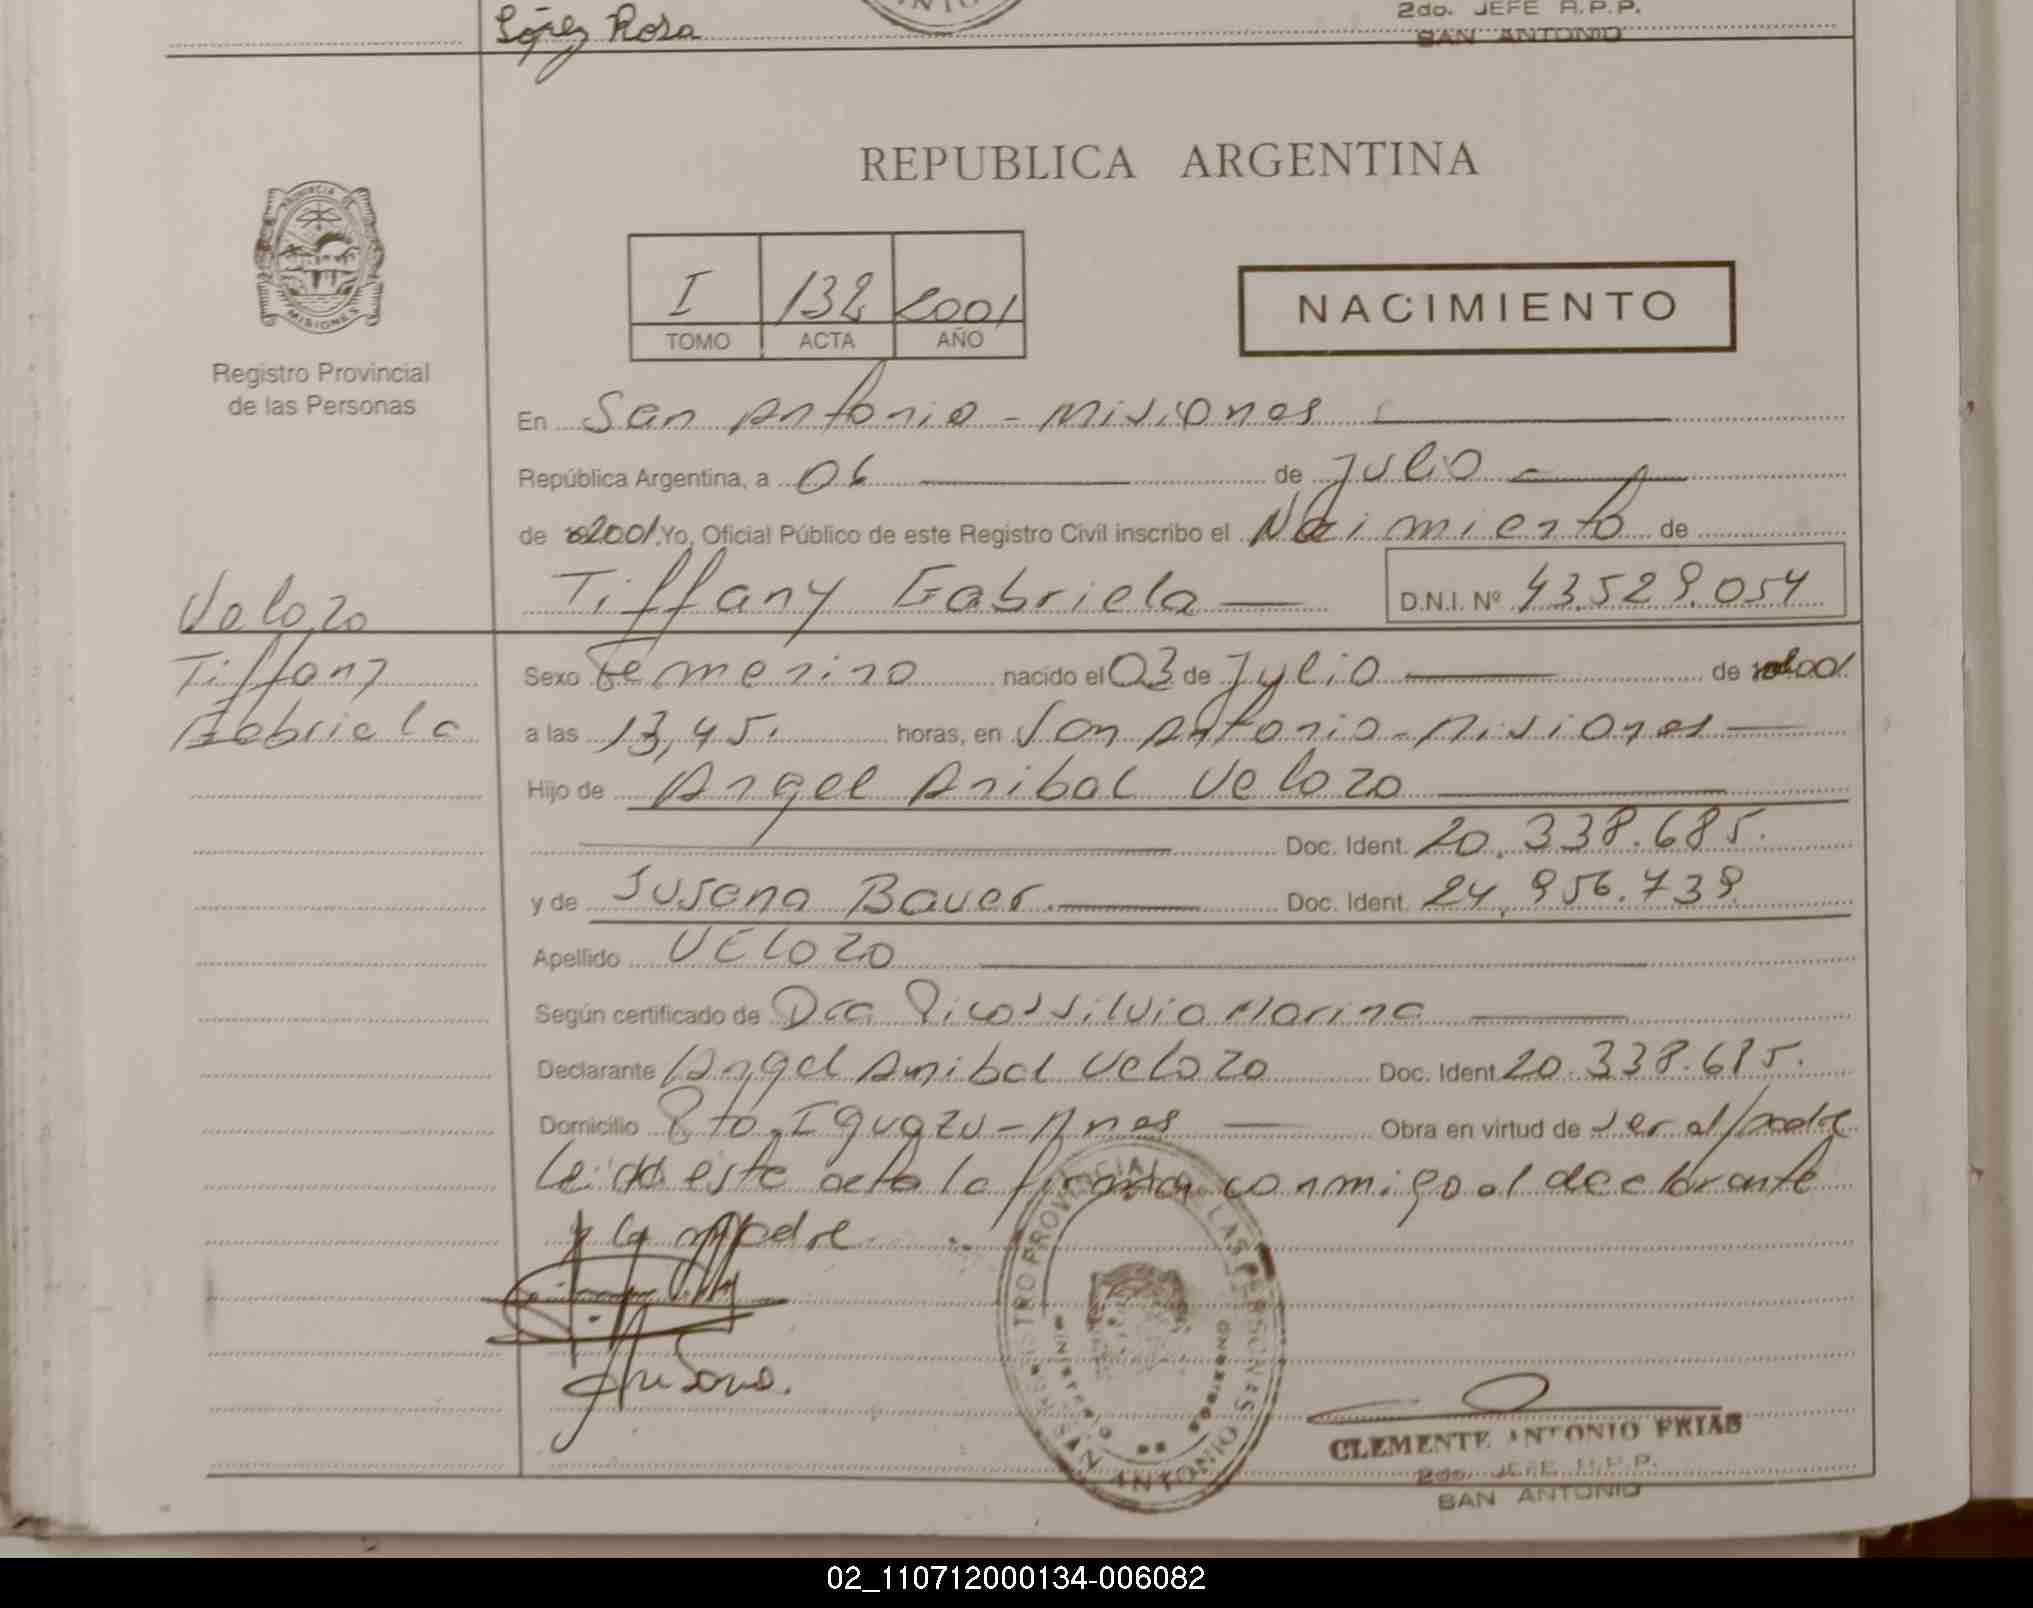 López Rosa
2do. JEFE R.P.P.
SAN ANTONIO
PROVINCIA DE
MISIONES
Registro Provincial
de las Personas
REPUBLICA ARGENTINA
I 132 2001
TOMO ACTA AÑO
NACIMIENTO
En San Antonio - Misiones
República Argentina, a 06 de Julio
de 2001 Yo, Oficial Público de este Registro Civil inscribo el Nacimiento de
Tiffany Gabriela D.N.I. Nº 43.529.054
Velozo
Tiffany
Gabriela
Sexo Femenino nacido el 03 de Julio de 2001.
a las 13,45. horas, en San Antonio - Misiones
Hijo de Angel Anibal Velozo
Doc. Ident. 20.338.685.
y de Susana Bauer. Doc. Ident. 24.956.739.
Apellido VELOZO
Según certificado de Dra Picos Silvia Marina
Declarante Angel Anibal Velozo Doc. Ident. 20.338.685.
Domicilio Pto. Iguazu - Mnes Obra en virtud de ser el padre
Leida este acta la firma conmigo el declarante
y la madre.
Susana.
REGISTRO PROVINCIAL DE LAS PERSONAS
MINISTERIO
SAN ANTONIO
CLEMENTE ANTONIO FRIAS
2do. JEFE R.P.P.
SAN ANTONIO
02_110712000134-006082